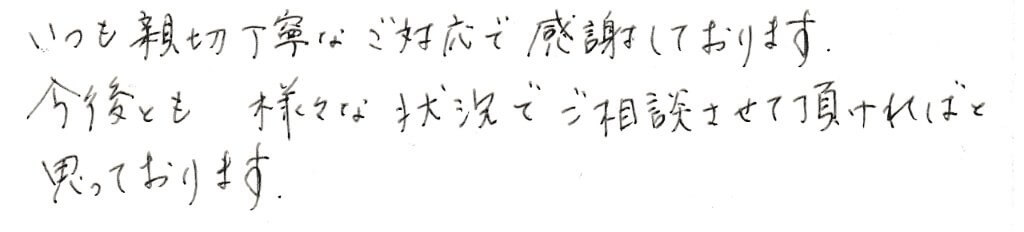 いつも親切丁寧なご対応で感謝しております.
今後とも 様々な状況でご相談させて頂ければと
思っております.